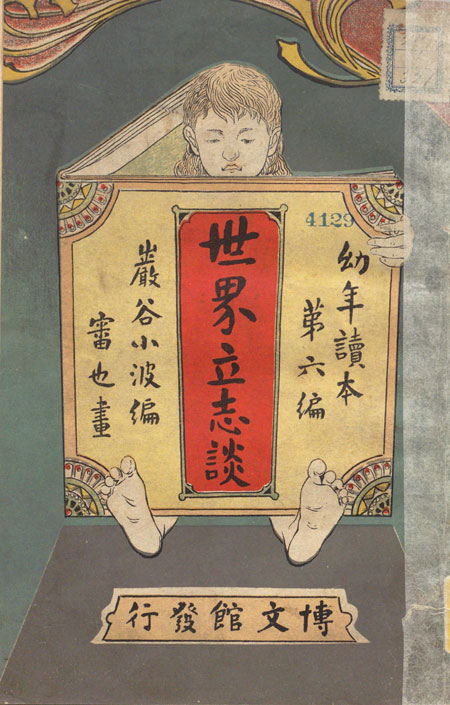 幼年讀本
第六編
4129
世界立志談
巖谷小波編
審也畫
博文館發行